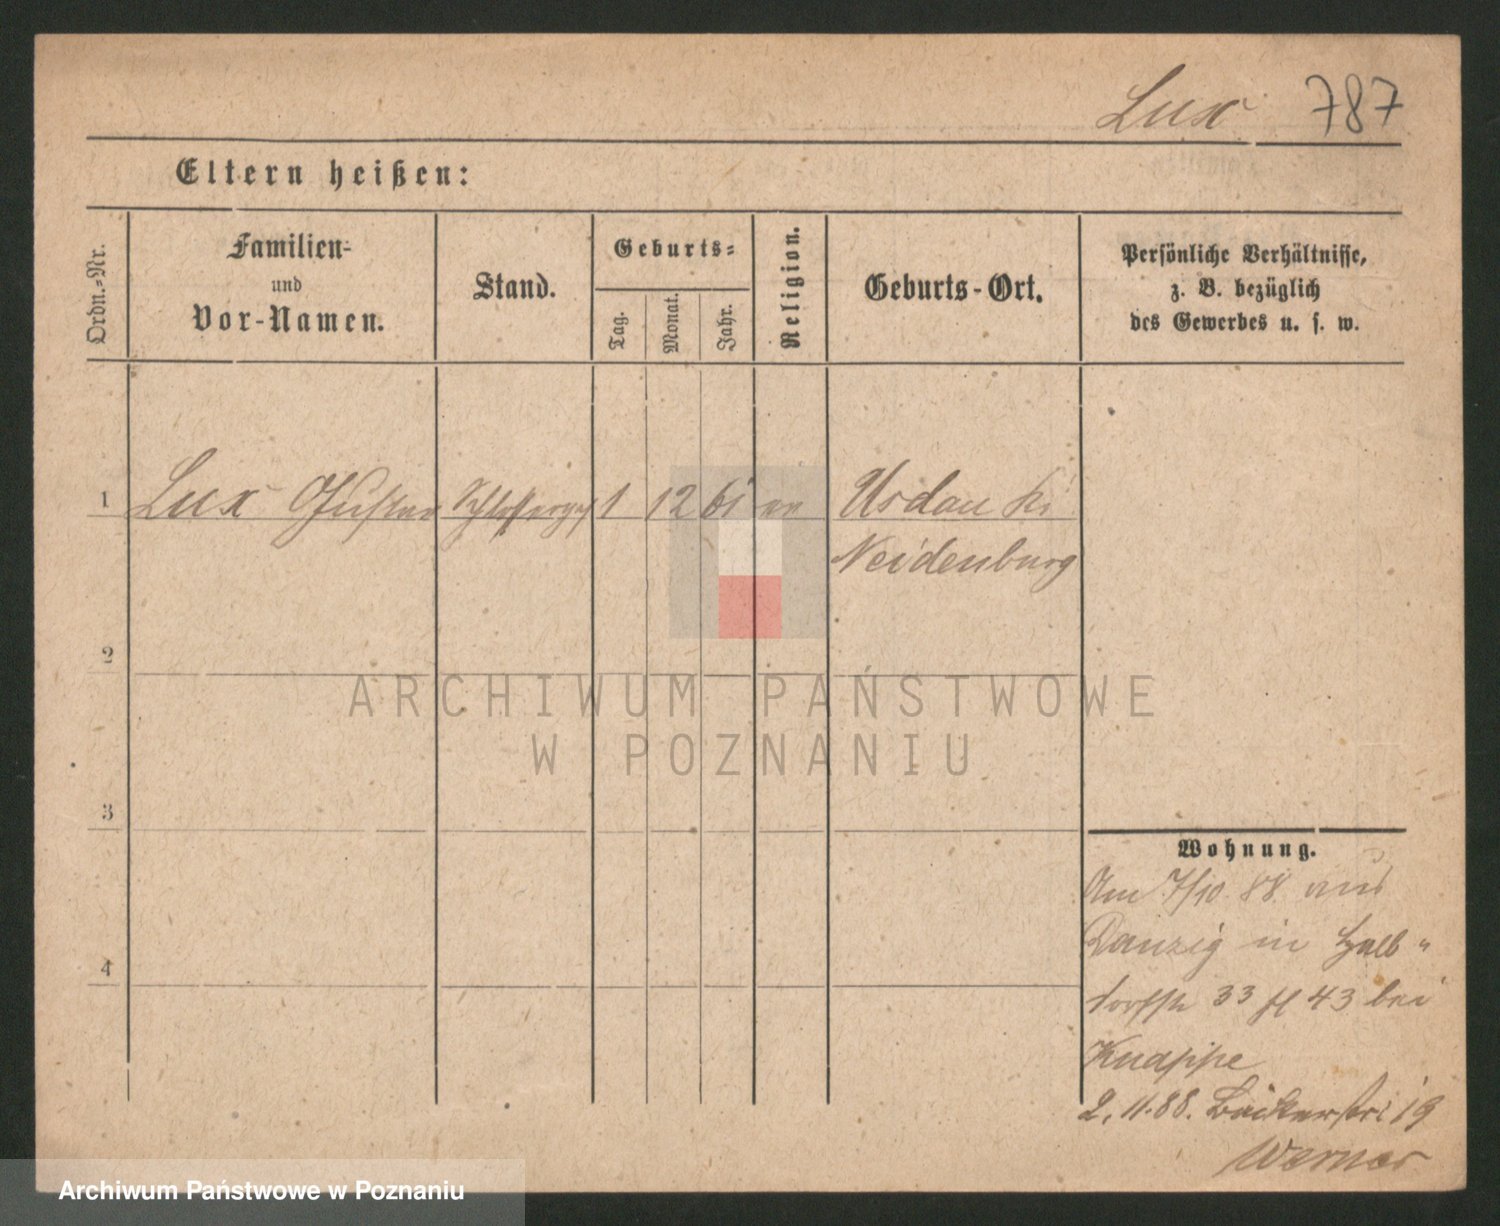 Lux 787
Eltern heißen:
Ordn.-Nr.
Familien-
und
Vor-Namen.
Stand.
Geburts-
Tag.
Monat.
Jahr.
Religion.
Geburts-Ort.
Persönliche Verhältnisse,
z. B. bezüglich
des Gewerbes u. s. w.
1 Lux Gustav Schlosserges 1 12 61 ev Usdau Kr
Neidenburg
2
3
4
ARCHIWUM PAŃSTWOWE
W POZNANIU
Wohnung.
Am 7/10 88 aus
Danzig in Halb-
dorfstr 33 43 bei
Knappe
2.11.88. Bäckerstr 19
Werner
Archiwum Państwowe w Poznaniu